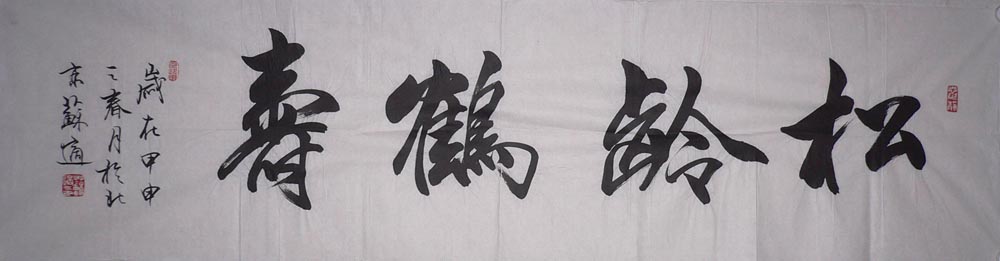 松齡鶴壽
歲在甲申
之春月於北
京蘇適